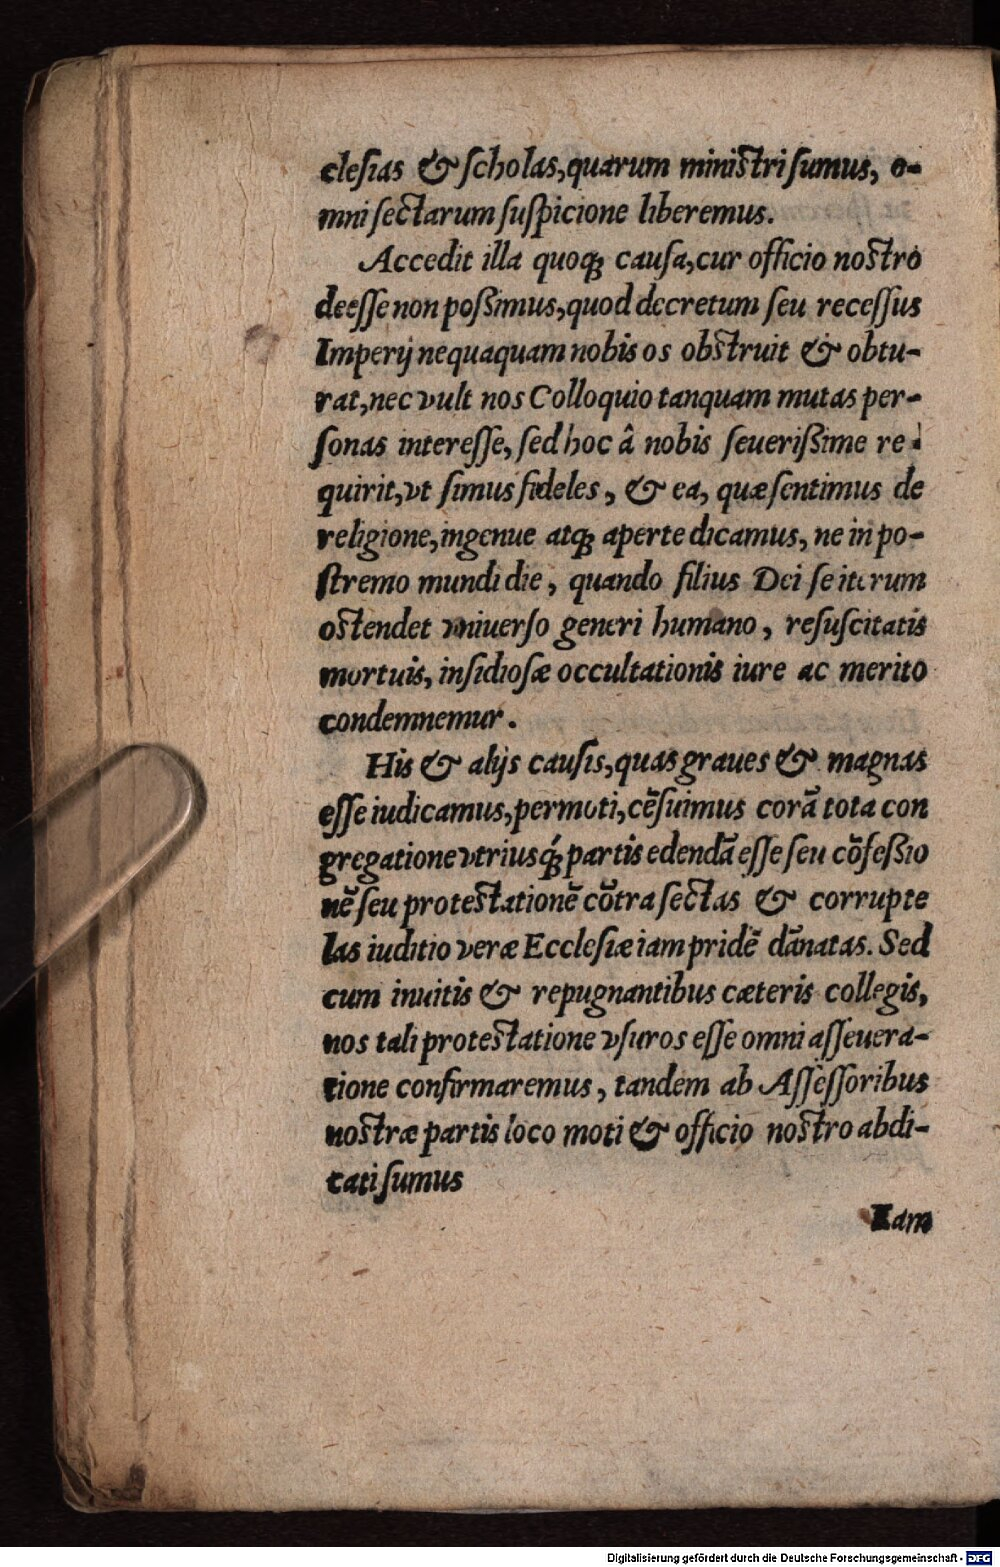 clesias & scholas, quarum ministri sumus, o-
mni sectarum suspicione liberemus.
Accedit illa quoqȝ causa, cur officio nostro
deesse non poßimus, quod decretum seu recessus
Imperij nequaquam nobis os obstruit & obtu-
rat, nec vult nos Colloquio tanquam mutas per-
sonas interesse, sed hoc â nobis seuerißime re-
quirit, vt simus fideles, & ea, quæ sentimus de
religione, ingenue atqȝ aperte dicamus, ne in po-
stremo mundi die, quando filius Dei se iterum
ostendet vniuerso generi humano, resuscitatis
mortuis, insidiosæ occultationis iure ac merito
condemnemur.
His & alijs causis, quas graues & magnas
esse iudicamus, permoti, cẽsuimus corã tota con
gregatione vtriusqȝ́ partis edendã esse seu cõfeßio
nẽ seu protestationẽ cõtra sectas & corrupte
las iuditio veræ Ecclesiæ iam pridẽ dãnatas. Sed
cum inuitis & repugnantibus cæteris collegis,
nos tali protestatione vsuros esse omni asseuera-
tione confirmaremus, tandem ab Assessoribus
nostræ partis loco moti & officio nostro abdi-
cati sumus
Iam
Digitalisierung gefördert durch die Deutsche Forschungsgemeinschaft - DFG